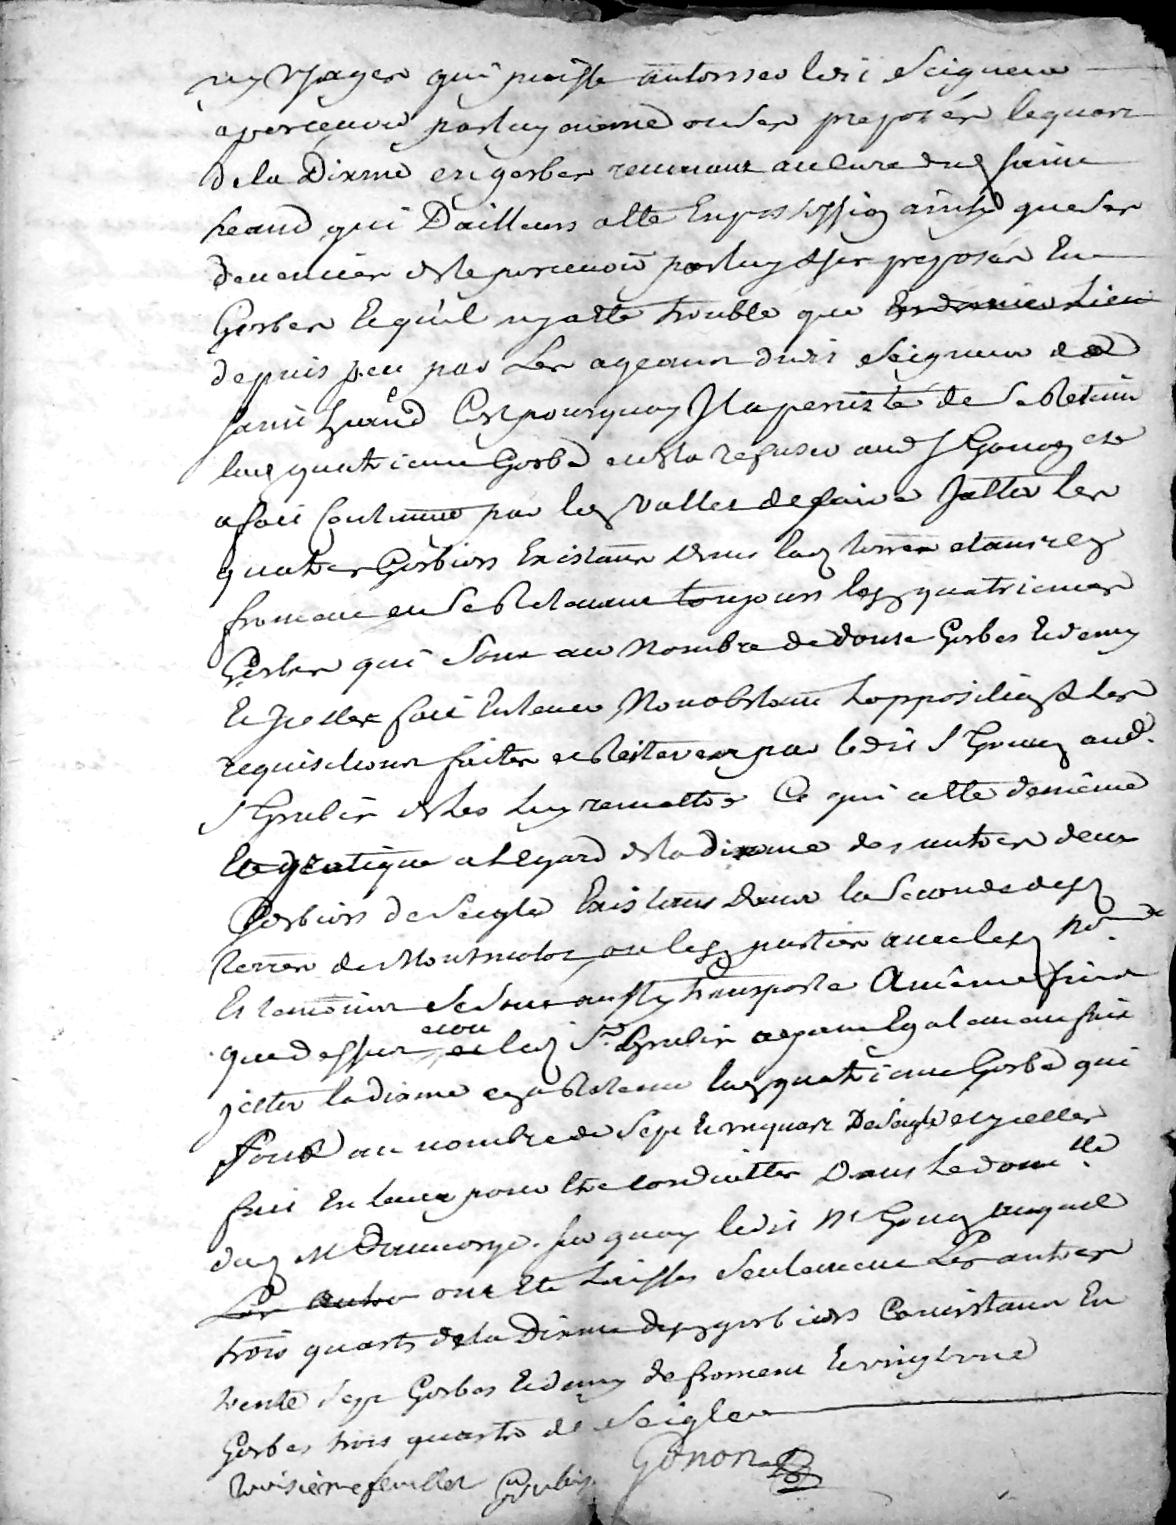 ny usager qui puisse autorisser ledit Seigneur
apercevoir par luy meme ou ses preposés le quart
de la Dixme en gerbes revenant au curé dud Saint
heand qui D'ailleurs a été En possession ainsy que ses
devanciers de le percevoir par luy & ses preposés En
Gerbes Et qu'il n'y a été trouble que
depuis peu par Les ageants dudit Seigneur de
saint heand C'est pourquoy Il a persisté de se Retenir
lad quatrieme Gerbe et de la refuser aud S Gonon et
a fait Continuer par led Vallet de faire Jetter les
quatre Gerbiers Existans Dans lad terre et tousiours
froment en se Retenant toujours lesd quatriemes
Gerbes qui Sont au Nombre de douse Gerbes Et demy
Et Icelles fait Enlever Nonobstant L'opposition & Les
requisitions faites et Reiterées par ledit S Gonon aud.
S Grubis de les luy remettre Ce qui a été de même
pratiqué a L'Egard de la dixme des autres deux
Gerbiers de Seigle Existans Dans la Seconde desd
terres de Montmolot ou lesd parties avec lesd No.re
Et temoins se sont aussy transporté A même fin
que dessus led S.r Grubis ayant Egalement fait
jetter la dixme et a Retenu lad quatrieme Gerbe qui
sont au nombre de Sept Et un quart De Seigle et jcelles
fait Enlever pour Etre conduittes Dans Le domi.lle
dud M Sur quoy ledit M.e Gonon auquel
Les autres ont Eté Laissés Seulement Les autres
trois quarts de la Dixme desd gerbiers Consistans En
trente Sept Gerbes Et demy de froment Et vingt une
Gerbes trois quarts de Seigle
troisième feuillet Grubis Gonon